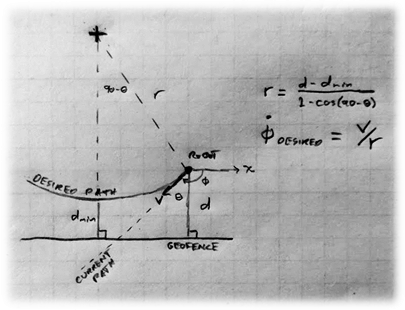 90-θ
r
r = d - dmin / 1-cos(90-θ)
φ̇ DESIRED = v/r
ROBOT
x
φ
DESIRED PATH
θ
v
dmin
d
GEOFENCE
CURRENT
PATH